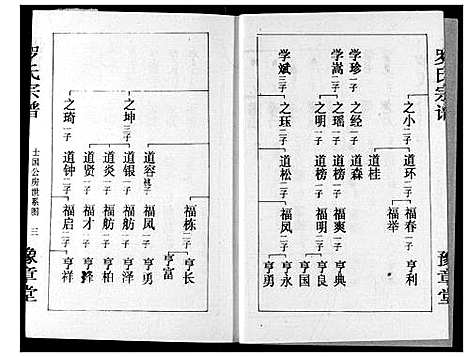 罗氏宗谱
豫章堂
学珍 一子
学嵩 二子
学斌 三子
之小 二子
之经 一子
之瑶 一子
之明 一子
之珏 二子
道环 二子
道桂
道森
道榜 一子
道榜 明子
道松 二子
福春 一子
福举
福爽 二子
福明 二子
福凤 二子
亨利
亨典
亨良
亨国
亨永
亨勇
罗氏宗谱
士国公房世系图 三
豫章堂
之坤 三子
之琦 一子
道容 祧子
道银 一子
道炎 一子
道贤 一子
道钟 一子
福栋 二子
福凤 二子
福舫 二子
福舫 二子
福才 一子
福启 二子
亨长
亨富
亨勇
亨泽
亨柏
亨祥